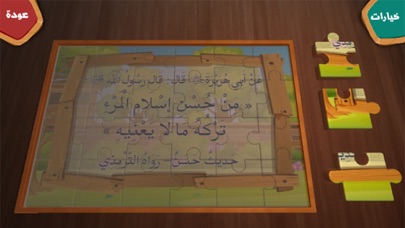 خيارات
عودة
عن أبي هريرة ﷺ قال: قال رسول الله ﷺ
« من حُسْنِ إسْلامِ الْمَرْءِ
تَرْكُهُ مَا لا يَعْنِيهِ »
حديث حسن رواه الترمذي